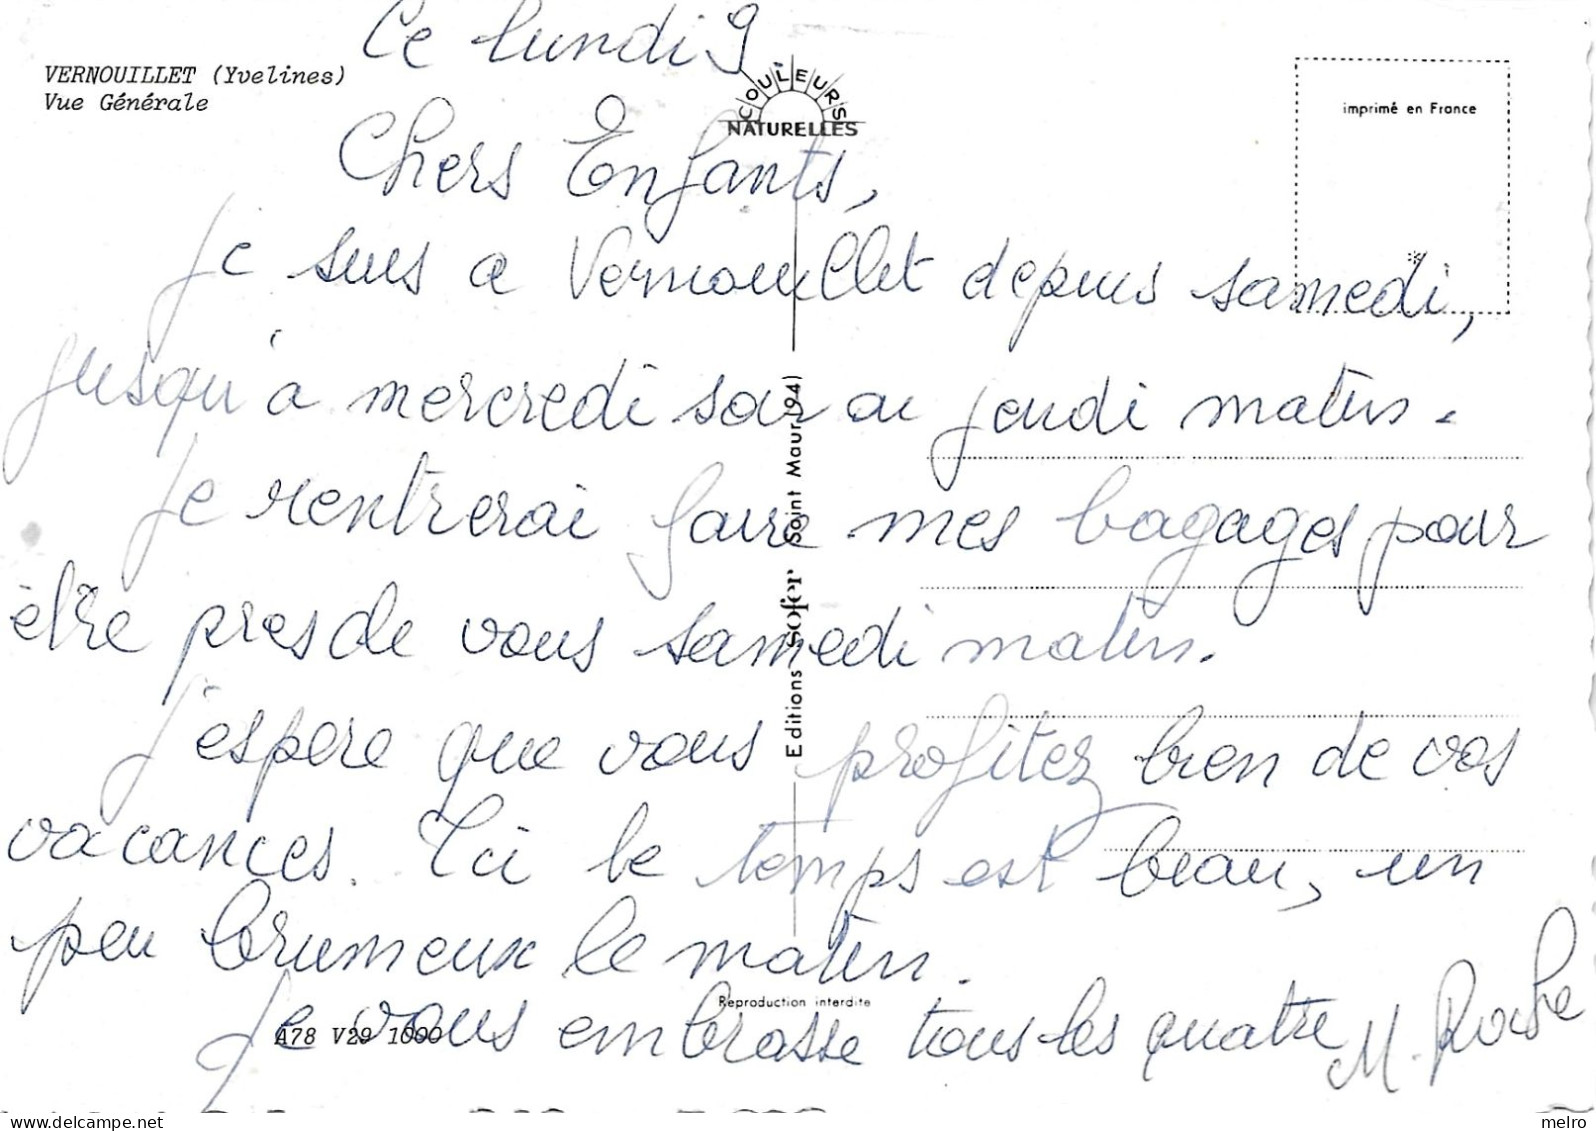 Ce lundi 9.
VERNOUILLET (Yvelines)
Vue Générale
COULEURS
NATURELLES
imprimé en France
Chers Enfants,
Je suis a Vernouillet depuis samedi,
jusqu'à mercredi soir ou jeudi matin.
Je rentrerai faire mes bagages pour
être pres de vous samedi matin.
J'espere que vous profitez bien de vos
vacances. Ici le temps est beau, un
peu brumeux le matin.
Je vous embrasse tous les quatre
M. Roche
Editions sofer Saint Maur (94)
Reproduction interdite
A78 V29 1000
melro